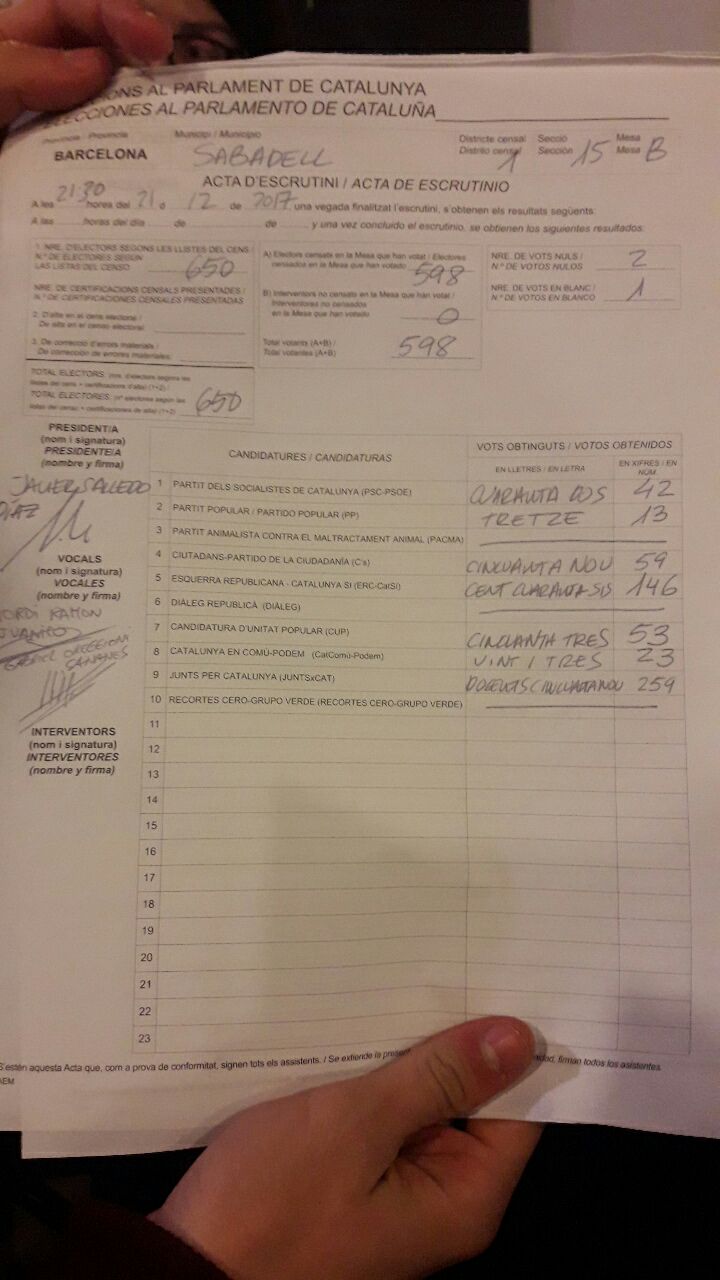 ONS AL PARLAMENT DE CATALUNYA
ELECCIONES AL PARLAMENTO DE CATALUÑA
Província / Provincia
Municipi / Municipio
Districte censal
Secció
Mesa
BARCELONA
SABADELL
Distrito censal 1
Sección 15
Mesa B
ACTA D'ESCRUTINI / ACTA DE ESCRUTINIO
A les 21:30 hores del 21 d 12 de 2017 una vegada finalitzat l'escrutini, s'obtenen els resultats següents:
A las horas del día de de y una vez concluido el escrutinio, se obtienen los siguientes resultados:
1. NRE. D'ELECTORS SEGONS LES LLISTES DEL CENS /
N.º DE ELECTORES SEGÚN
LAS LISTAS DEL CENSO 650
NRE. DE CERTIFICACIONS CENSALS PRESENTADES /
N.º DE CERTIFICACIONES CENSALES PRESENTADAS
2. D'alta en el cens electoral /
De alta en el censo electoral:
3. De correcció d'errors materials /
De corrección de errores materiales:
TOTAL ELECTORS:
TOTAL ELECTORES: 650
A) Electors censats en la Mesa que han votat / Electores
censados en la Mesa que han votado 598
B) Interventors no censats en la Mesa que han votat /
Interventores no censados
en la Mesa que han votado 0
Total votants (A+B) /
Total votantes (A+B) 598
NRE. DE VOTS NULS /
N.º DE VOTOS NULOS 2
NRE. DE VOTS EN BLANC /
N.º DE VOTOS EN BLANCO 1
PRESIDENT/A
(nom i signatura)
PRESIDENTE/A
(nombre y firma)
JAVIER SALCEDO
DIAZ
VOCALS
(nom i signatura)
VOCALES
(nombre y firma)
JORDI RAMON
INTERVENTORS
(nom i signatura)
INTERVENTORES
(nombre y firma)
CANDIDATURES / CANDIDATURAS
VOTS OBTINGUTS / VOTOS OBTENIDOS
EN LLETRES / EN LETRA
EN XIFRES / EN NÚM.
1 PARTIT DELS SOCIALISTES DE CATALUNYA (PSC-PSOE) QUARANTA DOS 42
2 PARTIT POPULAR / PARTIDO POPULAR (PP) TRETZE 13
3 PARTIT ANIMALISTA CONTRA EL MALTRACTAMENT ANIMAL (PACMA)
4 CIUTADANS-PARTIDO DE LA CIUDADANÍA (C's) CINCUANTA NOU 59
5 ESQUERRA REPUBLICANA - CATALUNYA SÍ (ERC-CatSí) CENT CUARANTA SIS 146
6 DIÀLEG REPUBLICÀ (DIÀLEG)
7 CANDIDATURA D'UNITAT POPULAR (CUP) CINCUANTA TRES 53
8 CATALUNYA EN COMÚ-PODEM (CatComú-Podem) VINT I TRES 23
9 JUNTS PER CATALUNYA (JUNTSxCAT) 259
10 RECORTES CERO-GRUPO VERDE (RECORTES CERO-GRUPO VERDE)
11
12
13
14
15
16
17
18
19
20
21
22
23
S'estén aquesta Acta que, com a prova de conformitat, signen tots els assistents. / Se extiende la firman todos los asistentes.